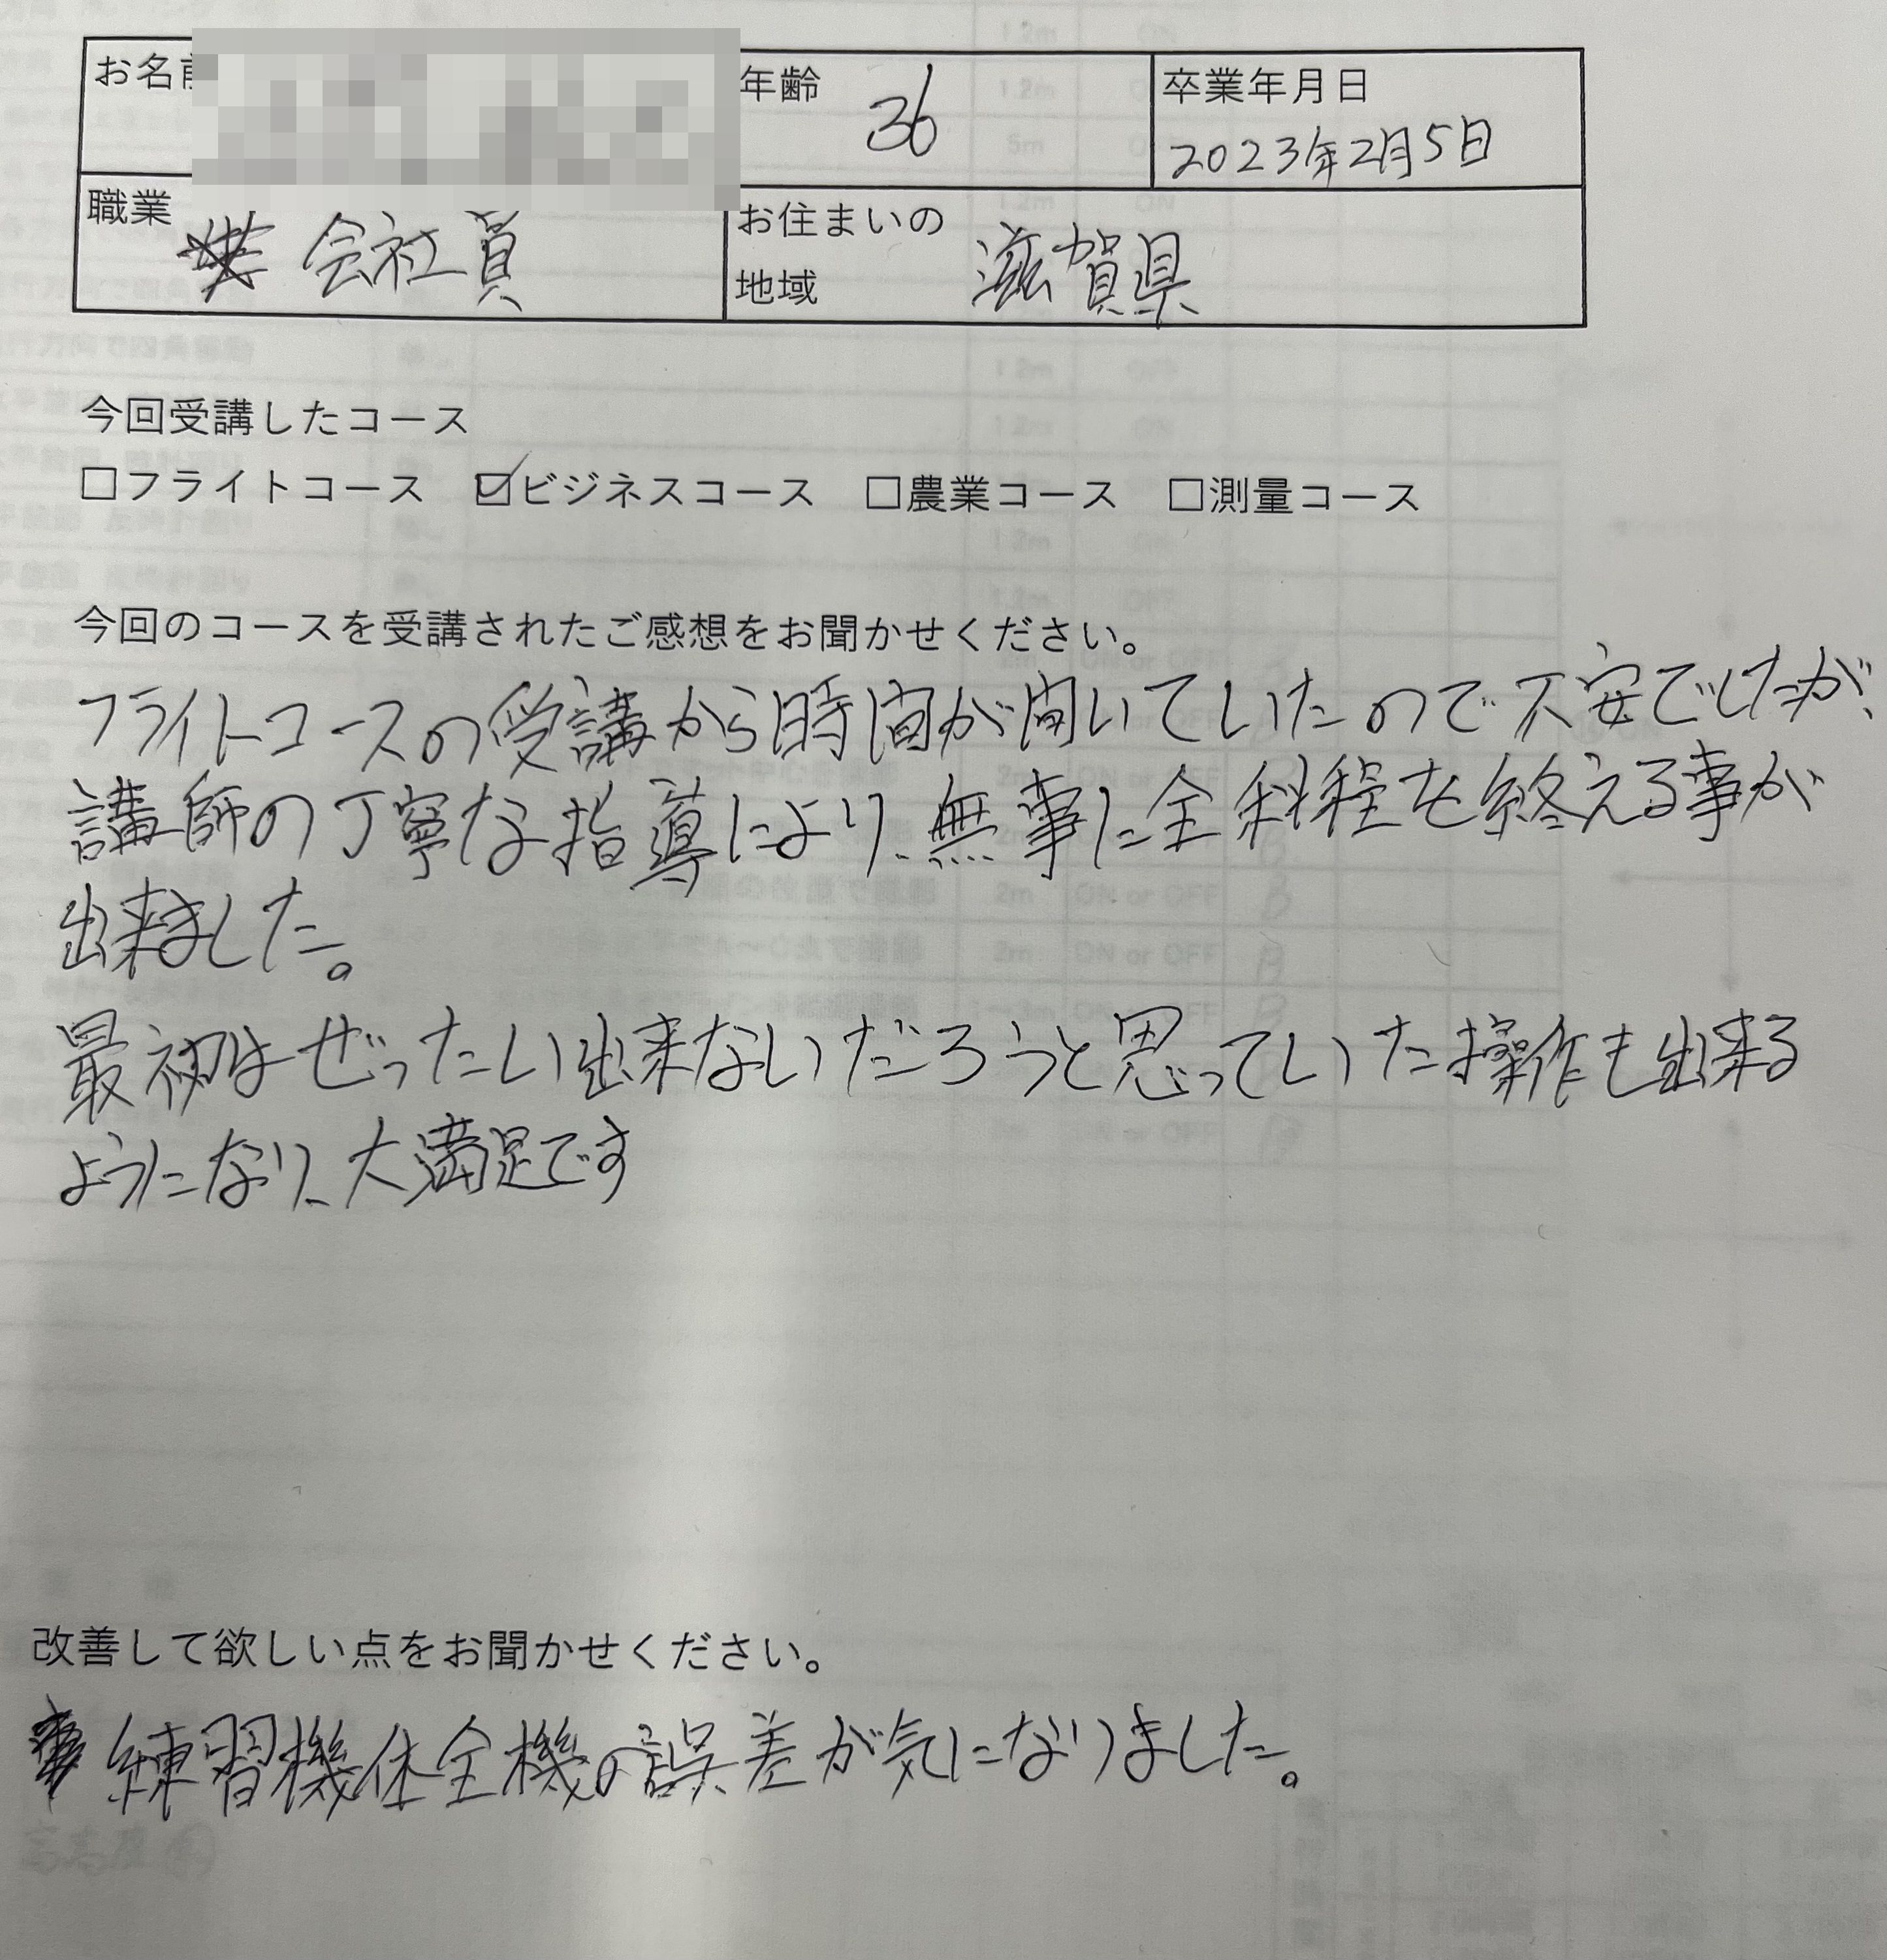 お名前
年齢 36
卒業年月日
2023年2月5日
職業 会社員
お住まいの
地域 滋賀県
今回受講したコース
□フライトコース ☑ビジネスコース □農業コース □測量コース
今回のコースを受講されたご感想をお聞かせください。
フライトコースの受講から時間が開いていたので不安でしたが、
講師の丁寧な指導により、無事に全科程を終える事が
出来ました。
最初はぜったい出来ないだろうと思っていた操作も出来る
ようになり、大満足です
改善して欲しい点をお聞かせください。
練習機体全機の誤差が気になりました。